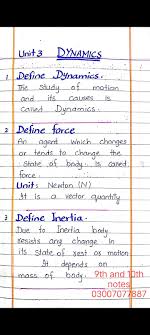 Unit 3 DYNAMICS
1 Define Dynamics.
The study of motion
and its causes is
called Dynamics.
2 Define force
An agent which changes
or tends to change the
State of body is called
force.
Unit: Newton (N)
It is a vector quantity
3 Define Inertia.
Due to Inertia body
resists any change in
its State of rest or motion
It depends on
mass of body.
9th and 10th
notes
03007077887